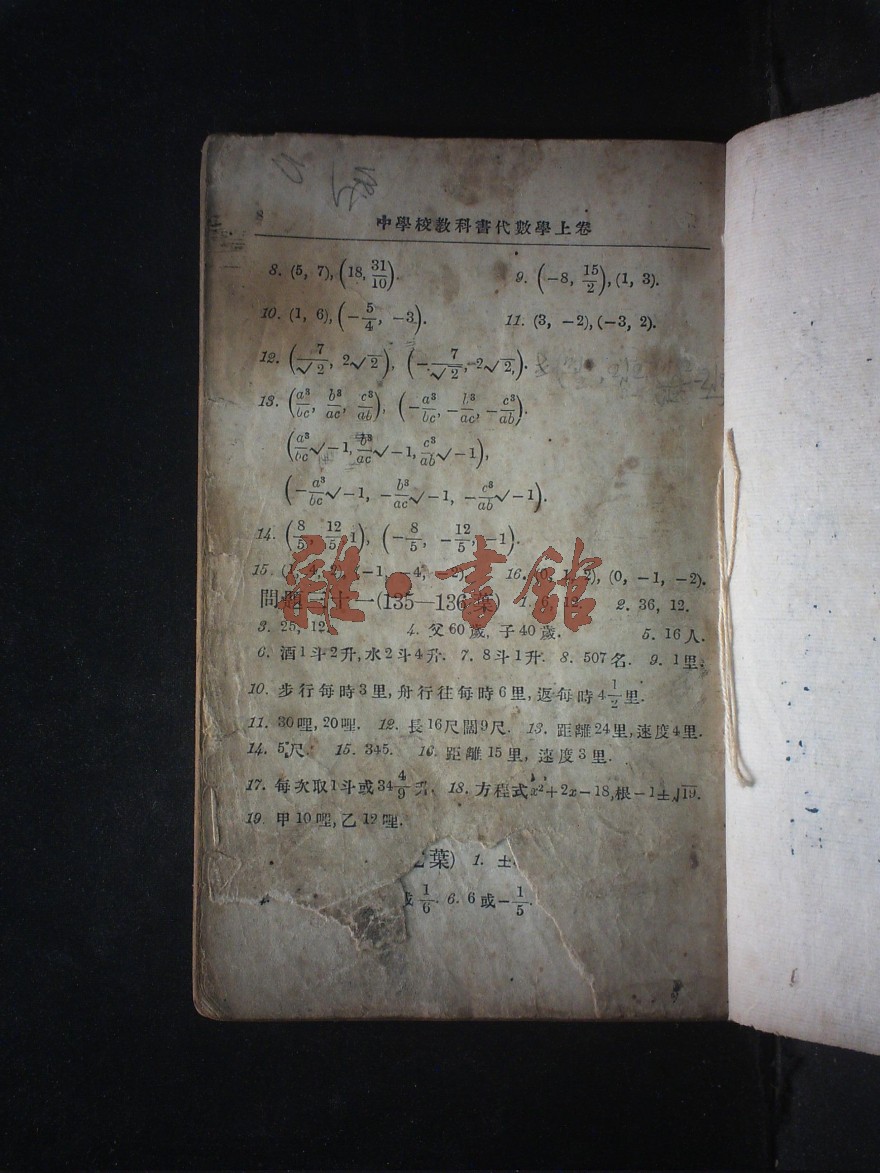 8
中學校教科書代數學上卷
8. (5, 7), (18, 31/10). 9. (−8, 15/2), (1, 3).
10. (1, 6), (−5/4, −3). 11. (3, −2), (−3, 2).
12. (7/√2, 2√2), (−7/√2, −2√2,).
13. (a³/bc, b³/ac, c³/ab), (−a³/bc, −b³/ac, −c³/ab).
(a³/bc √−1, b³/ac √−1, c³/ab √−1),
(−a³/bc √−1, −b³/ac √−1, −c³/ab √−1).
14. (8/5, 12/5, 1), (−8/5, −12/5, −1).
15. (1, 4, 2), (−1, −4, −2). 16. (0, 1, 2), (0, −1, −2).
雜·書館
問題二十一(135—136葉) 1. 9, 12. 2. 36, 12.
3. 25, 12. 4. 父60歲, 子40歲. 5. 16人.
6. 酒1斗2升, 水2斗4升. 7. 8斗1升. 8. 507名. 9. 1里.
10. 步行每時3里, 舟行往每時6里, 返每時4 1/2里.
11. 30哩, 20哩. 12. 長16尺闊9尺. 13. 距離24里, 速度4里.
14. 5尺. 15. 345. 16. 距離15里, 速度3里.
17. 每次取1斗或34 4/9升. 18. 方程式x²+2x−18, 根−1±√19.
19. 甲10哩, 乙12哩.
葉) 1. ±
或 1/6. 6. 6或−1/5.